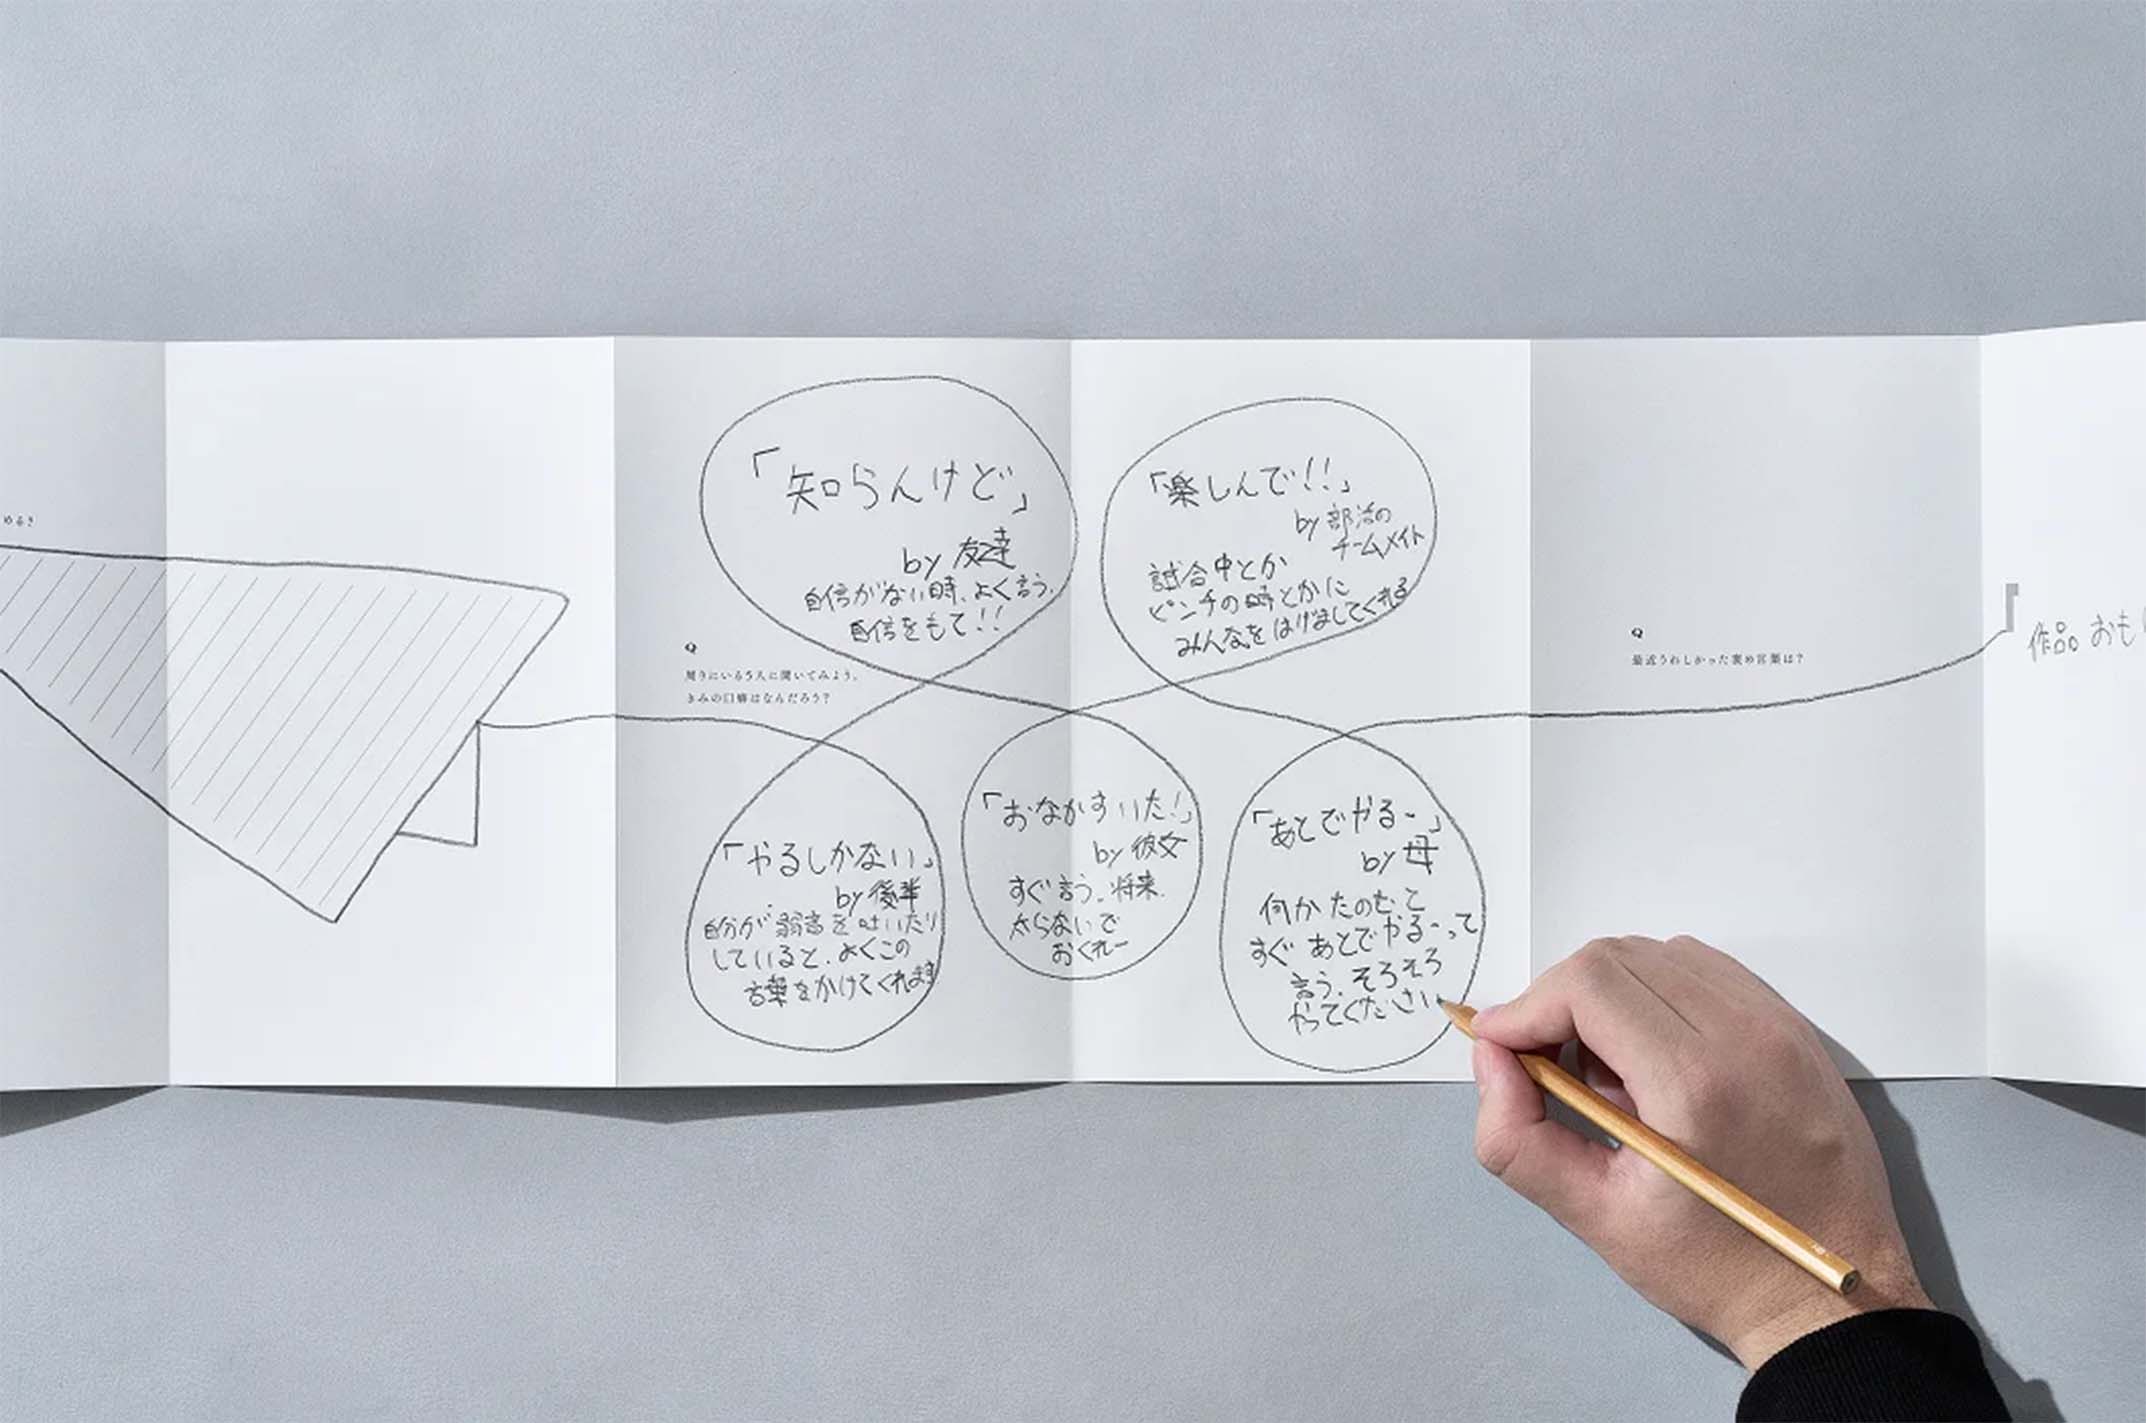 めるさ
「知らんけど」
by 友達
自信がない時、よく言う.
自信をもて!!
Q
周りにいる5人に聞いてみよう。
きみの口癖はなんだろう?
「やるしかない」
by 後輩
自分が弱音を吐いたり
していると、よくこの
言葉をかけてくれます
「おなかすいた!」
by 彼女
すぐ言う。将来
太らないで
おくれー
「楽しんで!!」
by 部活の
チームメイト
試合中とか
ピンチの時とかに
みんなをはげましてくれる
「あとでやるー」
by 母
何かたのむと
すぐあとでやるーって
言う. そろそろ
やってください
Q
最近うれしかった褒め言葉は?
作品おも